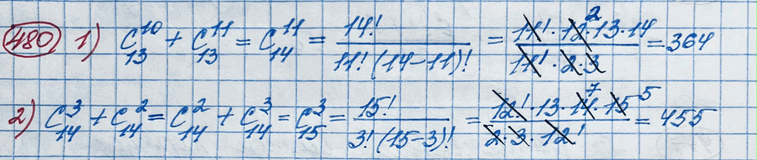 480 1) C₁₃¹⁰ + C₁₃¹¹ = C₁₄¹¹ = 14! / 11!(14-11)! = 11!·12²·13·14 / 11!·2·3 = 364
2) C₁₄³ + C₁₄² = C₁₄² + C₁₄³ = C₁₅³ = 15! / 3!(15-3)! = 12!·13·14⁷·15⁵ / 2·3·12! = 455